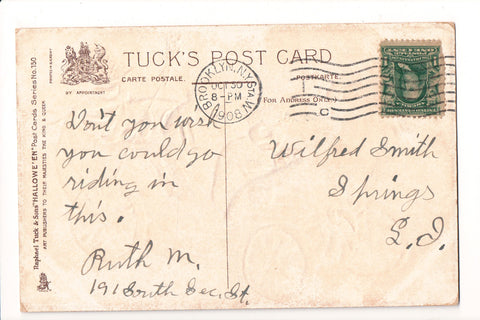 TUCK'S POST CARD
CARTE POSTALE.
POSTKARTE
(FOR ADDRESS ONLY.)
BY APPOINTMENT
BROOKLYN, N.Y. STA. W.
OCT 30
8-PM
1908
C
Raphael Tuck & Sons' "HALLOWE'EN" Post Cards Series No. 150
ART PUBLISHERS TO THEIR MAJESTIES THE KING & QUEEN
Don't you wish
you could go
riding in
this.
Ruth M.
191 South Sec. St.
Wilfred Smith
Springs
L. I.